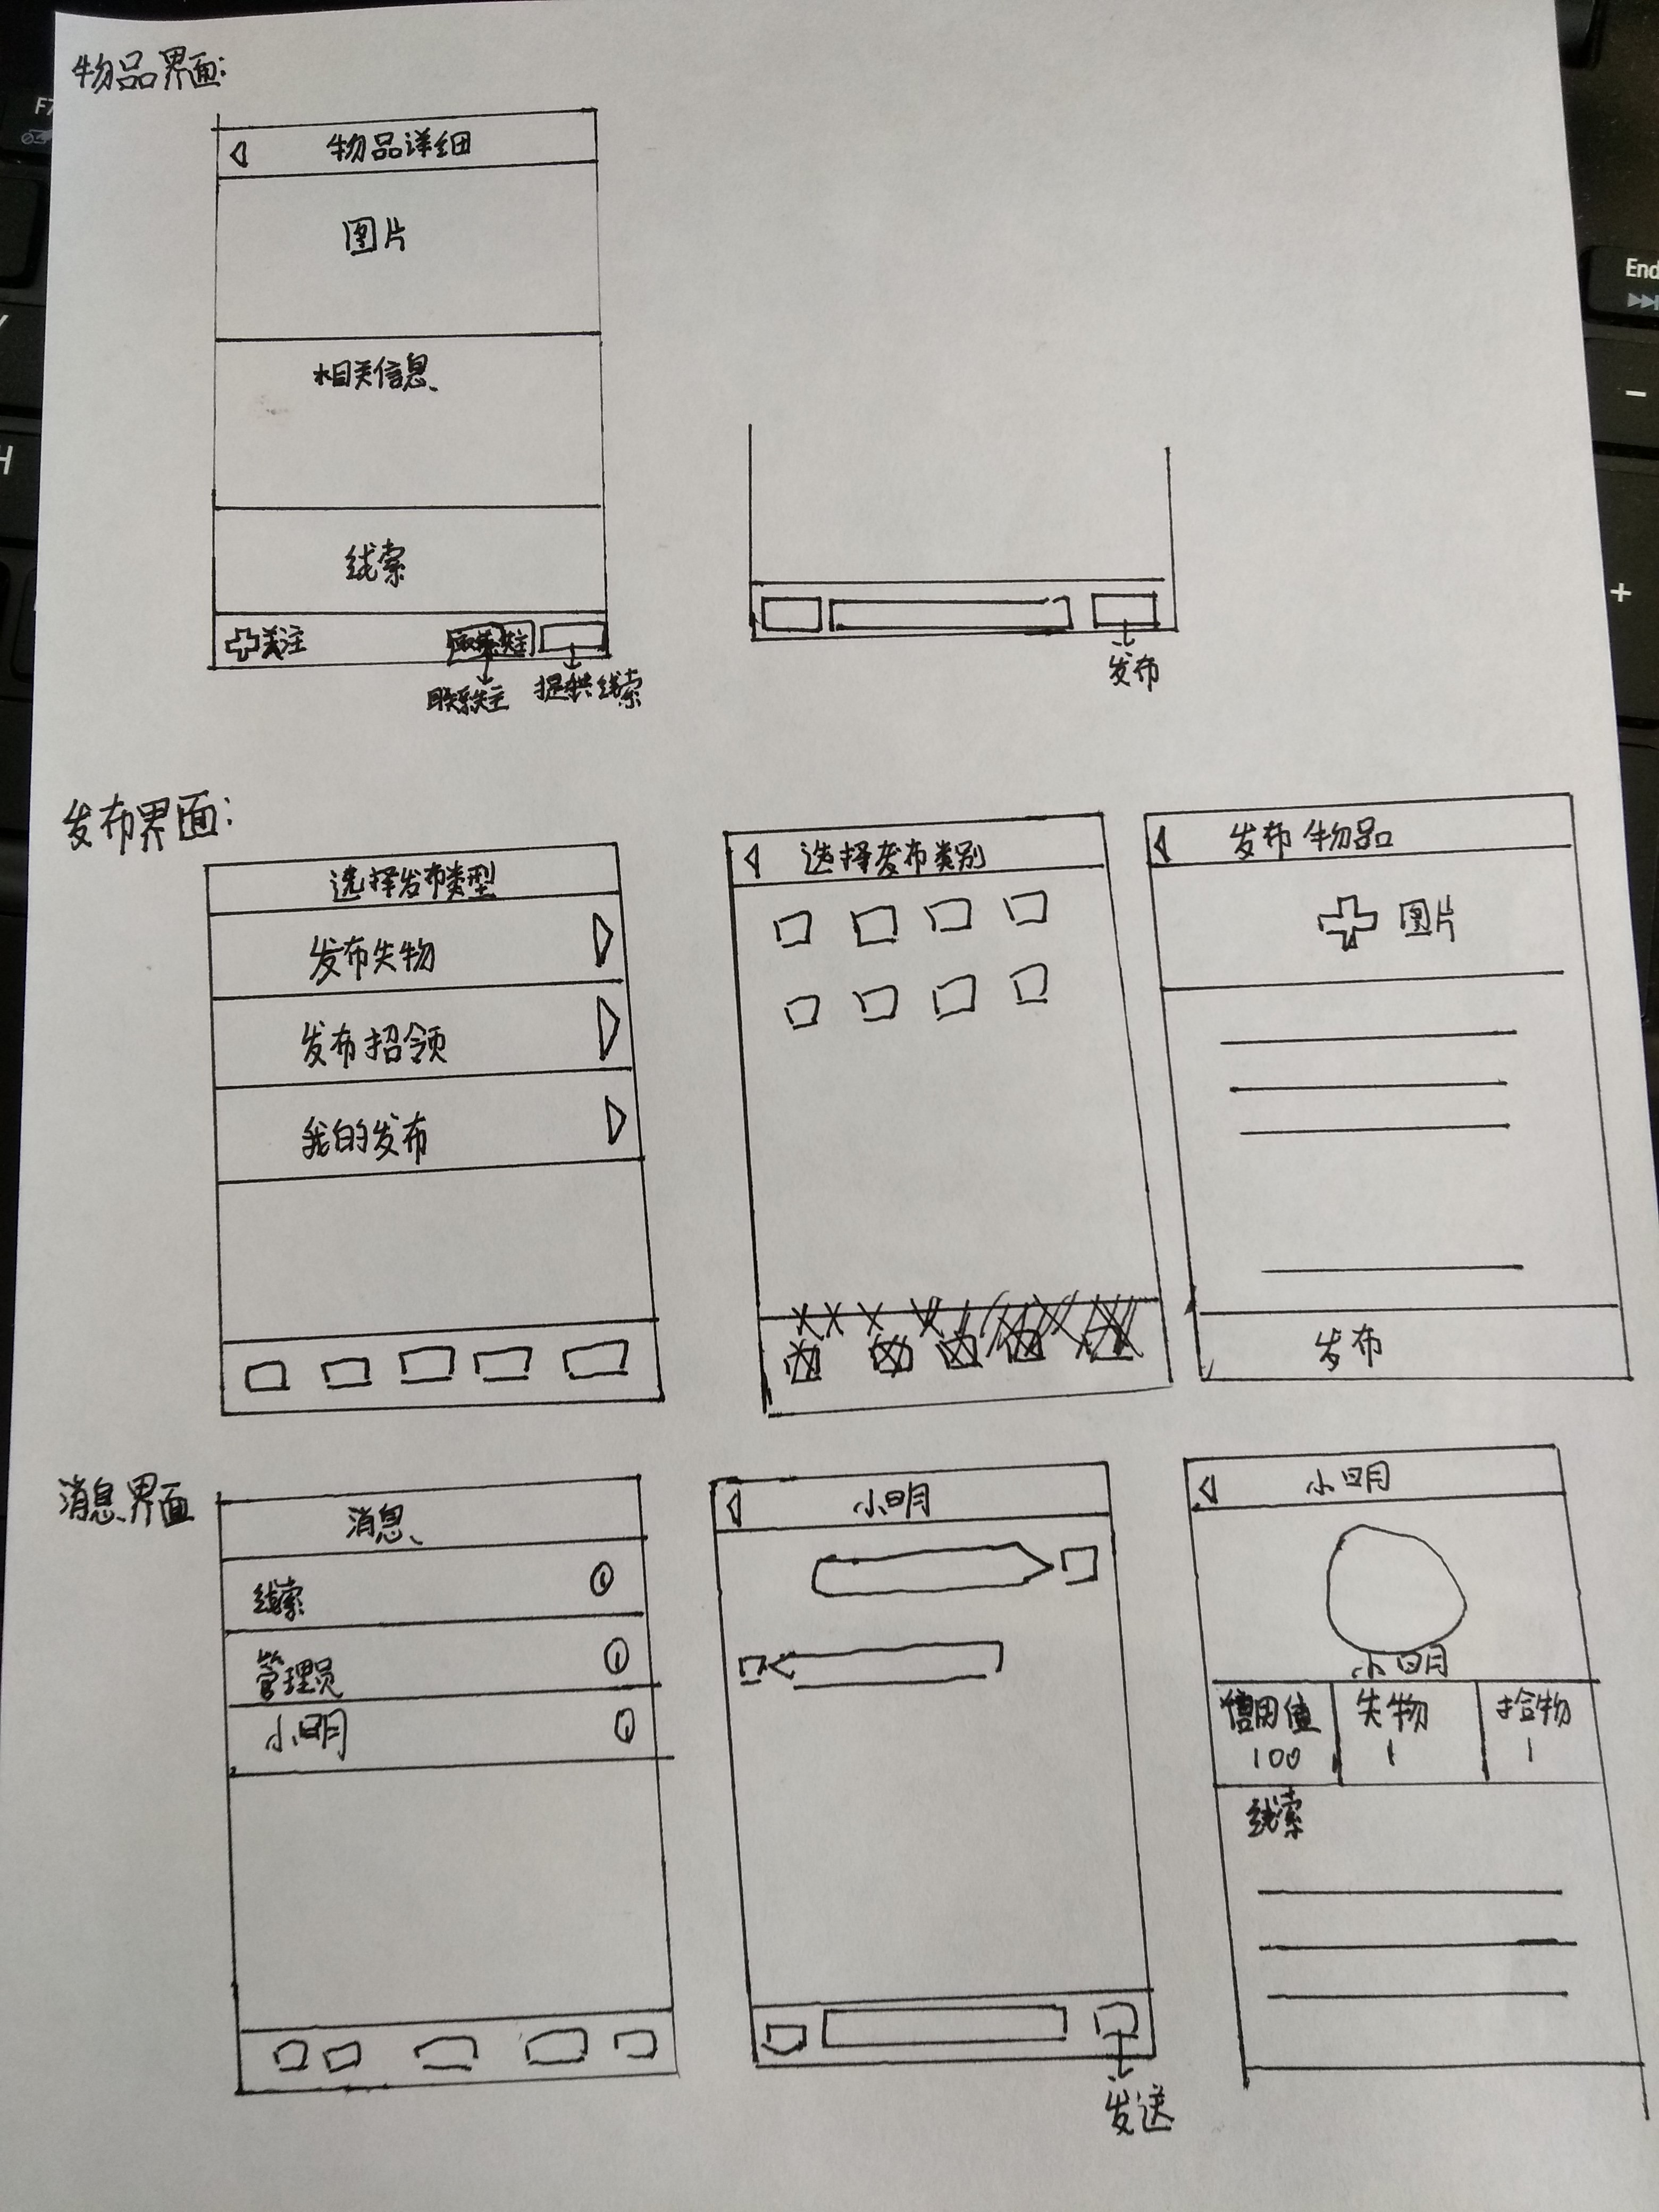 物品界面:
物品详细
图片
相关信息
线索
关注
联系失主
提供线索
发布
发布界面:
选择发布类型
发布失物
发布招领
我的发布
选择发布类别
发布物品
图片
发布
消息界面
消息
线索
管理员
小明
小明
发送
小明
小明
信用值 失物 拾物
100 1 1
线索
F7
End
H
-
+